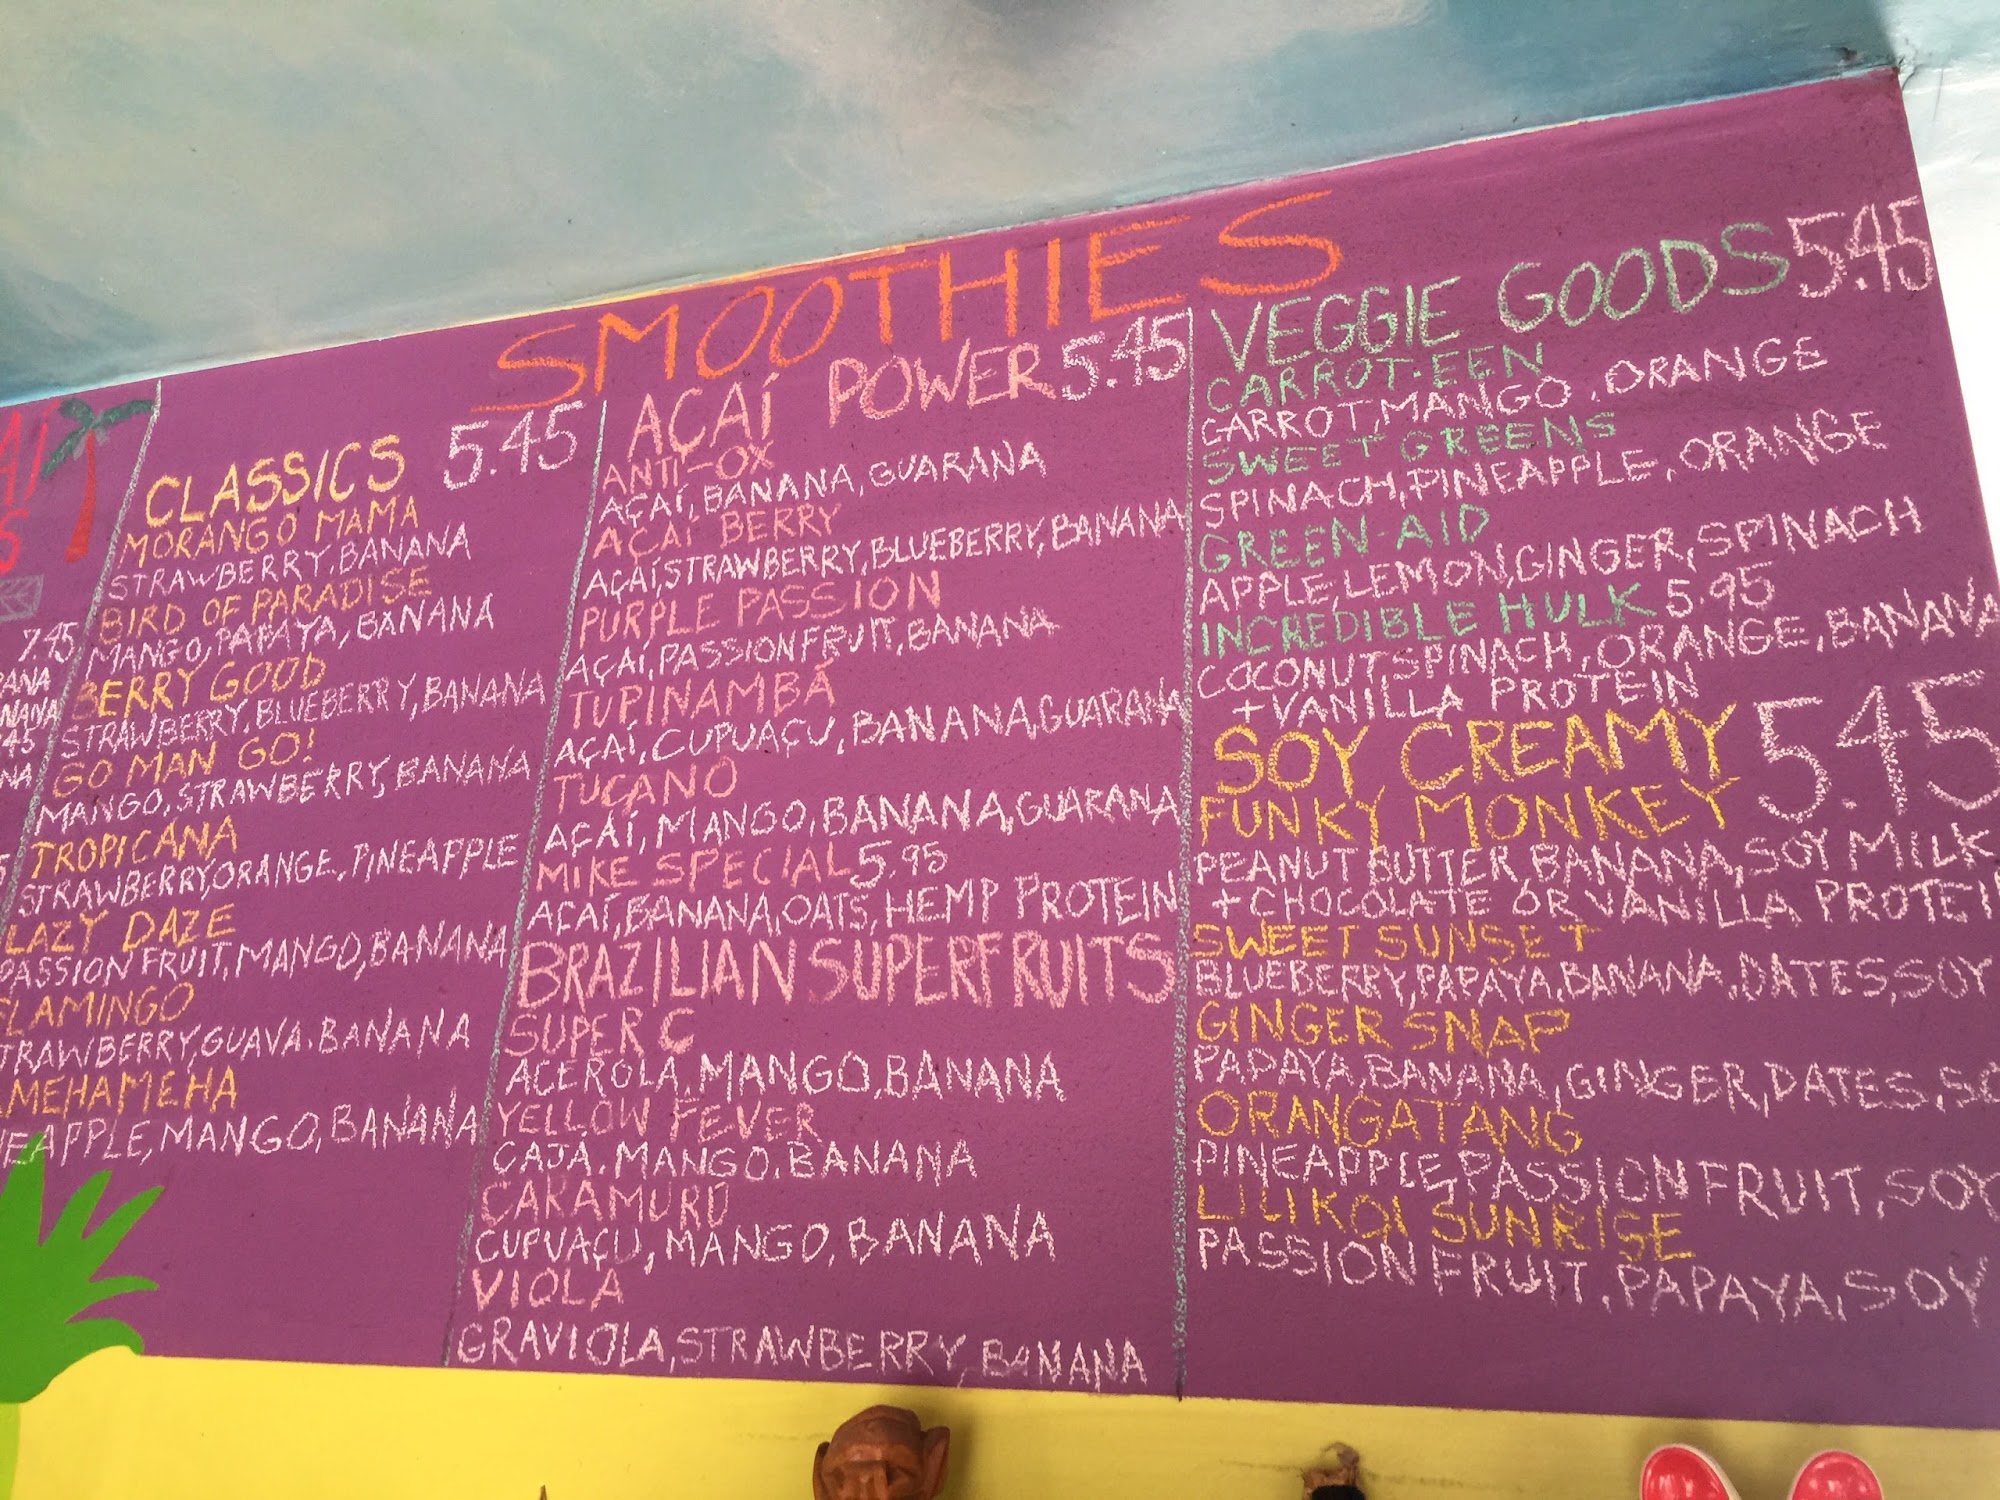 SMOOTHIES
7.45
CLASSICS 5.45
MORANGO MAMA
STRAWBERRY, BANANA
BIRD OF PARADISE
MANGO, PAPAYA, BANANA
BERRY GOOD
STRAWBERRY, BLUEBERRY, BANANA
GO MAN GO!
MANGO, STRAWBERRY, BANANA
TROPICANA
STRAWBERRY, ORANGE, PINEAPPLE
LAZY DAZE
PASSION FRUIT, MANGO, BANANA
FLAMINGO
TRAWBERRY, GUAVA. BANANA
AMEHAMEHA
NEAPPLE, MANGO, BANANA
AÇAÍ POWER 5.45
ANTI-OX
AÇAÍ, BANANA, GUARANA
AÇAÍ BERRY
AÇAÍ, STRAWBERRY, BLUEBERRY, BANANA
PURPLE PASSION
AÇAÍ, PASSIONFRUIT, BANANA
TUPINAMBÁ
AÇAÍ, CUPUAÇU, BANANA, GUARANA
TUCANO
AÇAÍ, MANGO, BANANA, GUARANA
MIKE SPECIAL 5.95
AÇAÍ, BANANA, OATS, HEMP PROTEIN
BRAZILIAN SUPERFRUITS
SUPER C
ACEROLA, MANGO, BANANA
YELLOW FEVER
CAJÁ. MANGO. BANANA
CARAMURÚ
CUPUAÇU, MANGO, BANANA
VIOLA
GRAVIOLA, STRAWBERRY, BANANA
VEGGIE GOODS 5.45
CARROT-EEN
CARROT, MANGO, ORANGE
SWEET GREENS
SPINACH, PINEAPPLE, ORANGE
GREEN-AID
APPLE, LEMON, GINGER, SPINACH
INCREDIBLE HULK 5.95
COCONUT, SPINACH, ORANGE, BANANA
+ VANILLA PROTEIN
SOY CREAMY 5.45
FUNKY MONKEY
PEANUT BUTTER, BANANA, SOY MILK
+ CHOCOLATE OR VANILLA PROTEIN
SWEET SUNSET
BLUEBERRY, PAPAYA, BANANA, DATES, SOY
GINGER SNAP
PAPAYA, BANANA, GINGER, DATES, SO
ORANGATANG
PINEAPPLE, PASSION FRUIT, SOY
LILIKOI SUNRISE
PASSION FRUIT, PAPAYA, SOY